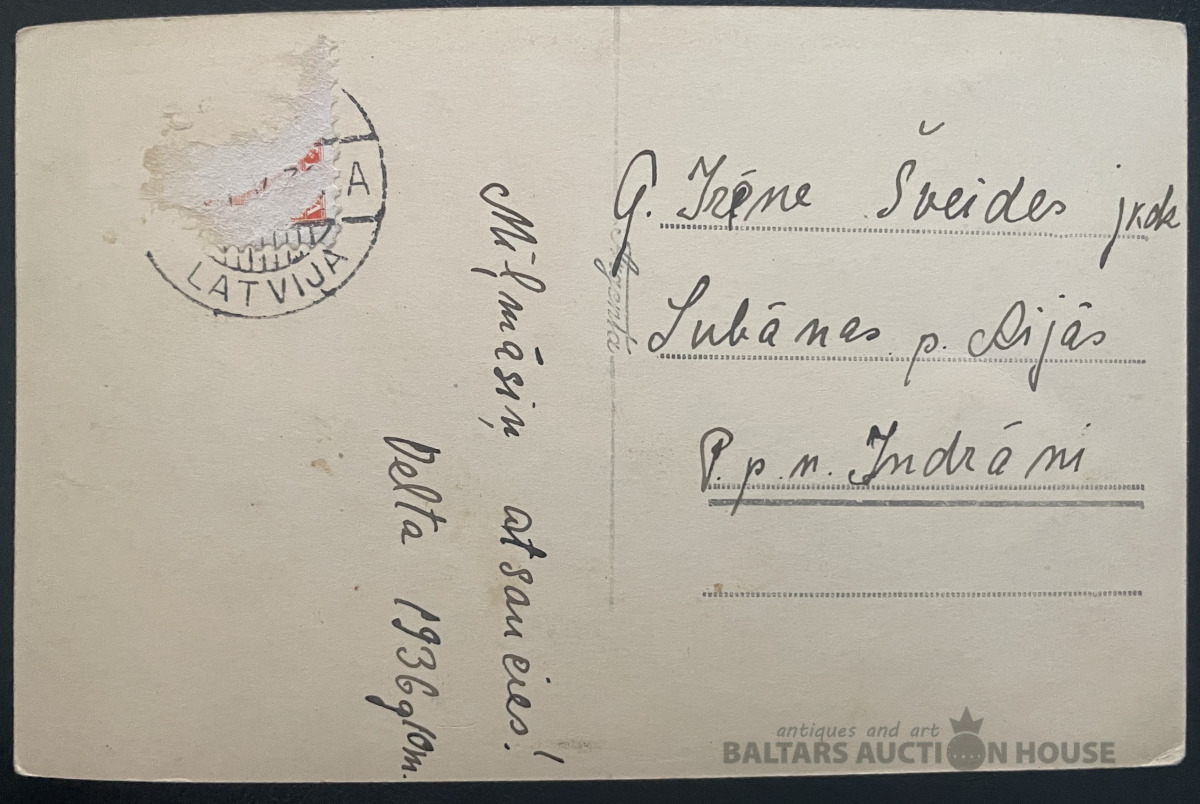 A
LATVIJA
Mīļmāsiņ atsaucies!
Velta 1936g10m.
G. Irēne Šveides jkdz
Lubānas p. Rijās
P. p. n. Indrāni
antiques and art
BALTARS AUCTION HOUSE